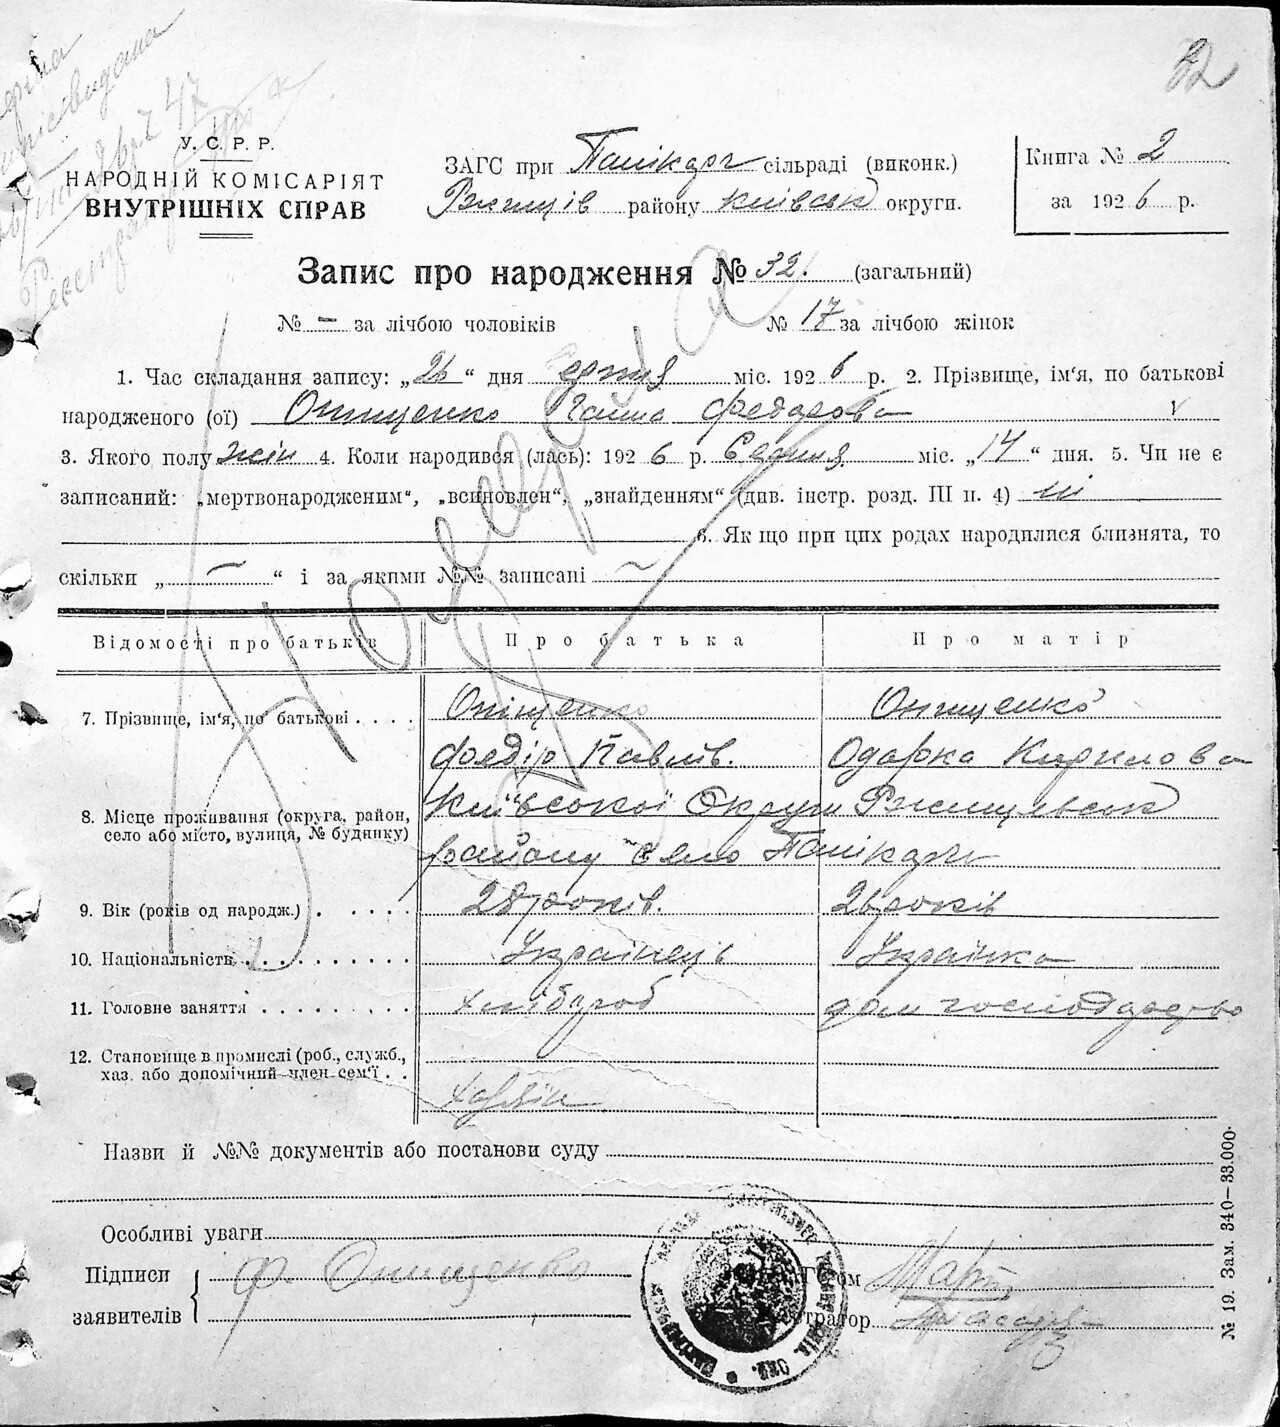 82
У. С. Р. Р.
НАРОДНІЙ КОМІСАРІЯТ
ВНУТРІШНІХ СПРАВ
ЗАГС при Панікарч сільраді (виконк.)
Ржищів району Київськ округи.
Книга № 2
за 1926 р.
Запис про народження № 32. (загальний)
№ – за лічбою чоловіків № 17 за лічбою жінок
1. Час складання запису: „26“ дня Серпня міс. 1926 р. 2. Прізвище, ім'я, по батькові
народженого (ої) Онищенко Ганна Федорова
3. Якого полу жін 4. Коли народився (лась): 1926 р. Серпня міс. „14“ дня. 5. Чи не є
записаний: „мертвонародженим“, „всиновлен“, „знайденням“ (див. інстр. розд. III п. 4) ні
6. Як що при цих родах народилися близнята, то
скільки „ – “ і за якими №№ записані –
Відомості про батьків Про батька Про матір
7. Прізвище, ім'я, по батькові . . . . Онищенко Онищенко
Федір Павлів. Одарка Кирилова
8. Місце проживання (округа, район, село або місто, вулиця, № будинку) Київської Округи Ржищівськ
району село Панікарч
9. Вік (років од народж.) . . . . . 28 років. 26 років
10. Національність . . . . . . . . . . Українець Українка
11. Головне заняття . . . . . . . . . хлібороб дом господарство
12. Становище в промислі (роб., служб.,
хаз. або допомічний член сем'ї . . хазяїн
Назви й №№ документів або постанови суду
Особливі уваги
Підписи
заявителів
Ф. Онищенко
№ 19. Зам. 340—33.000.